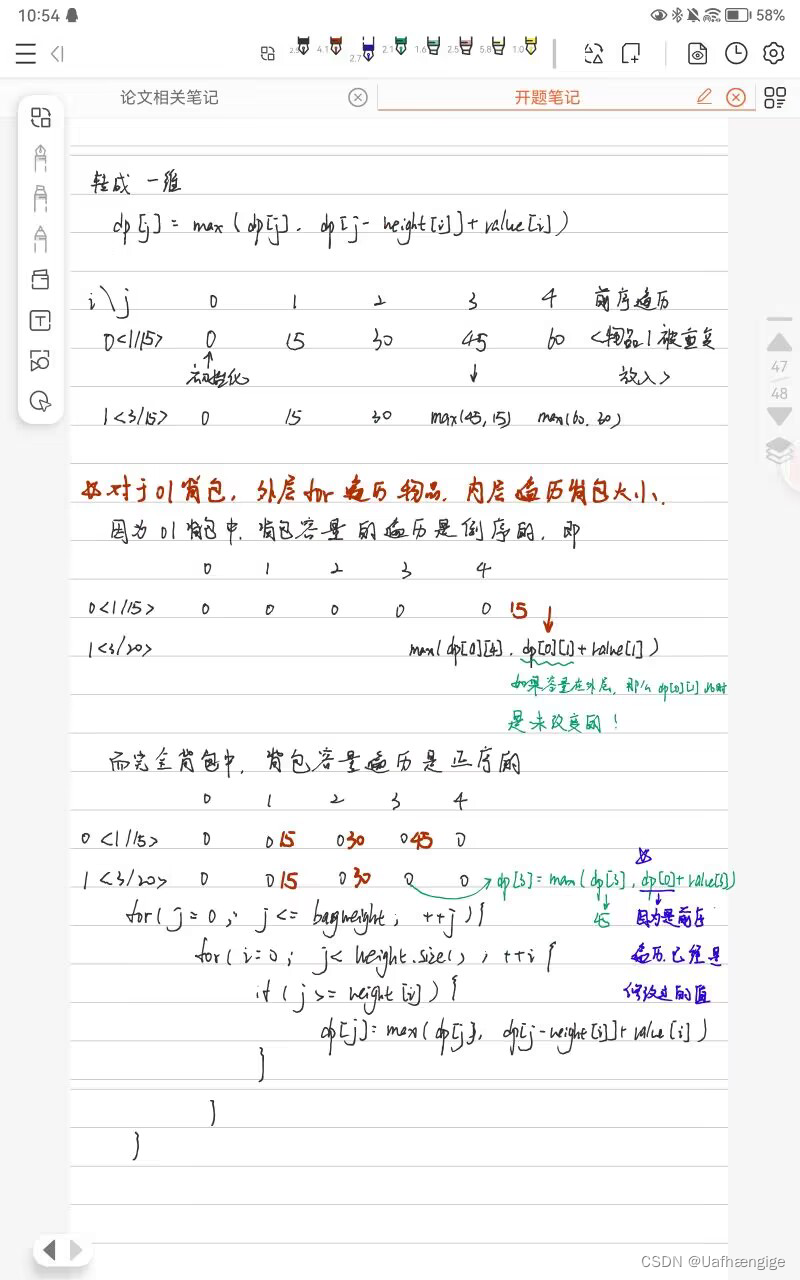 10:54
58%
2.9 4.1 2.7 2.1 1.6 2.5 5.8 1.0
论文相关笔记
开题笔记
转成 一维
dp[j] = max(dp[j], dp[j-weight[i]]+value[i])
i\j 0 1 2 3 4 前序遍历
0<1/15> 0 15 30 45 60 <物品1被重复
初始化 放入>
1<3/15> 0 15 30 max(45,15) max(60,30)
对于01背包,外层for遍历物品,内层遍历背包大小.
因为01背包中,背包容量的遍历是倒序的,即
0 1 2 3 4
0<1/15> 0 0 0 0 0 15
1<3/20> max(dp[0][4], dp[0][1]+value[1])
如果容量在外层,那么dp[0][1]此时
是未改变的!
而完全背包中,背包容量遍历是正序的
0 1 2 3 4
0<1/15> 0 0 15 0 30 0 45 0
1<3/20> 0 0 15 0 30 0 0 dp[3]=max(dp[3], dp[0]+value[3])
45 因为是前序
for(j=0; j<=bagweight; ++j){
for(i=0; j<weight.size(); ++i{ 遍历,已经是
if(j>=weight[i]){ 修改过的值
dp[j]=max(dp[j], dp[j-weight[i]]+value[i])
}
}
}
47
48
CSDN @Uafhængige